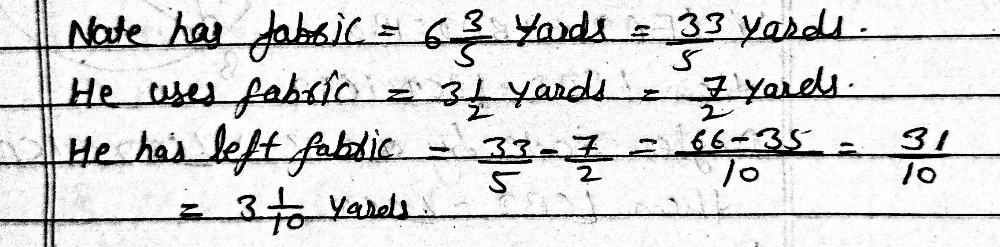 Nate has fabric = 6 3/5 yards = 33/5 yards.
He uses fabric = 3 1/2 yards = 7/2 yards.
He has left fabric = 33/5 - 7/2 = 66-35/10 = 31/10
= 3 1/10 yards.